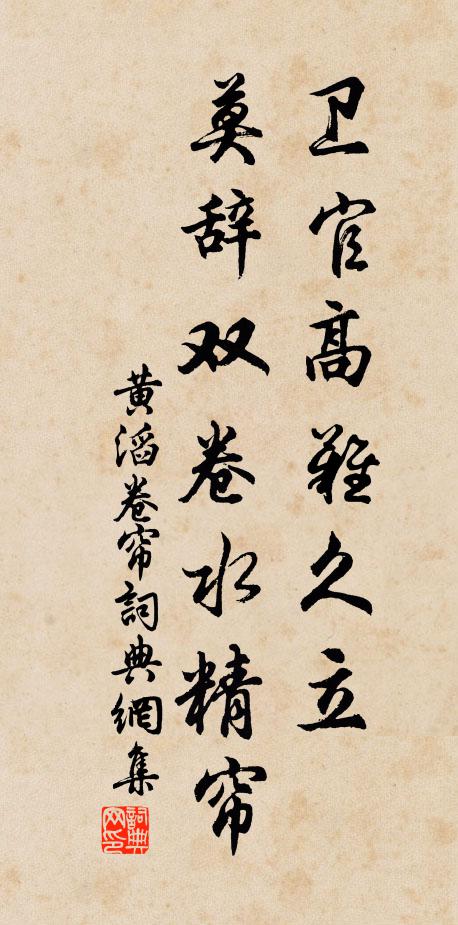 卫官高难久立
莫辞双卷水精帘
黄滔卷帘詞典網集
詞典
网印